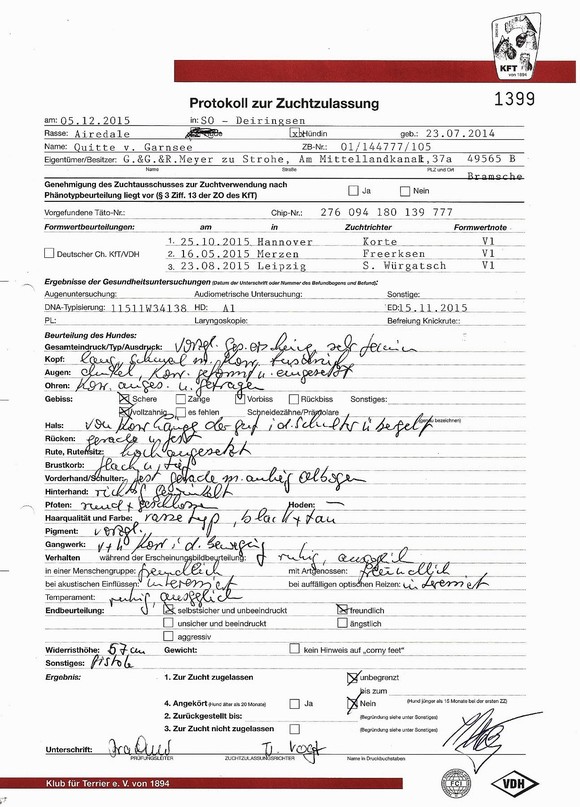 KFT
von 1894
Protokoll zur Zuchtzulassung
1399
am: 05.12.2015 in: SO - Deiringsen
Rasse: Airedale Hündin geb.: 23.07.2014
Name: Quitte v. Garnsee ZB-Nr.: 01/144777/105
Eigentümer/Besitzer: G.&G.&R.Meyer zu Strohe, Am Mittellandkanal,37a 49565 B
Name Straße PLZ und Ort
Bramsche
Genehmigung des Zuchtausschusses zur Zuchtverwendung nach
Phänotypbeurteilung liegt vor (§ 3 Ziff. 13 der ZO des KfT) Ja Nein
Vorgefundene Täto-Nr.: Chip-Nr.: 276 094 180 139 777
Formwertbeurteilungen: am in Zuchtrichter Formwertnote
1. 25.10.2015 Hannover Korte V1
Deutscher Ch. KfT/VDH 2. 16.05.2015 Merzen Freerksen V1
3. 23.08.2015 Leipzig S. Würgatsch V1
Ergebnisse der Gesundheitsuntersuchungen (Datum der Unterschrift oder Nummer des Befundbogens und Befund):
Augenuntersuchung: Audiometrische Untersuchung: Sonstige:
DNA-Typisierung: 11511W34138 HD: A1 ED: 15.11.2015
PL: Laryngoskopie: Befreiung Knickrute:
Beurteilung des Hundes:
Gesamteindruck/Typ/Ausdruck: vorzgl.
Kopf: lang, schmal m. korr.
Augen: dunkel, korr. geformt u. eingesetzt
Ohren: korr. anges. u. getragen
Gebiss: Schere Zange Vorbiss Rückbiss Sonstiges:
Vollzahnig es fehlen Schneidezähne/Prämolare
Hals: von korr. Länge
Rücken: gerade u. fest
Rute, Rutensitz: hoch angesetzt
Brustkorb: flach u. tief
Vorderhand/Schulter: fest gerade m. Ellbogen
Hinterhand: richtig gewinkelt
Pfoten: rund + geschlossen Hoden: —
Haarqualität und Farbe: rassetyp, black + tan
Pigment: vorzgl.
Gangwerk: v + h korr. i. d. Bewegung
Verhalten während der Erscheinungsbildbeurteilung: ruhig, ausgeglich
in einer Menschengruppe: freundlich mit Artgenossen: freundlich
bei akustischen Einflüssen: interessiert bei auffälligen optischen Reizen: interessiert
Temperament: ruhig, ausgeglich
Endbeurteilung: selbstsicher und unbeeindruckt freundlich
unsicher und beeindruckt ängstlich
aggressiv
Widerristhöhe: 57 cm Gewicht: kein Hinweis auf „corny feet“
Sonstiges: Pistole
Ergebnis: 1. Zur Zucht zugelassen unbegrenzt
bis zum
4. Angekört (Hund älter als 20 Monate) Ja Nein (Hund jünger als 15 Monate bei der ersten ZZ)
2. Zurückgestellt bis: (Begründung siehe unter Sonstiges)
3. Zur Zucht nicht zugelassen (Begründung siehe unter Sonstiges)
Unterschrift: Vogt
PRÜFUNGSLEITER ZUCHTZULASSUNGSRICHTER Name in Druckbuchstaben
Klub für Terrier e. V. von 1894
FCI
VDH